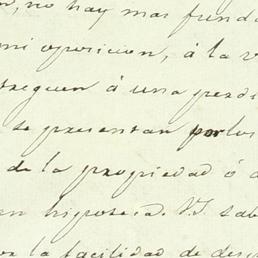 , no hay mas funda
mi oposicion, á la v
treguen á una perso
se presentan por los
de la propiedad ó d
an hipoteca. V.S. sab
la facilidad de des